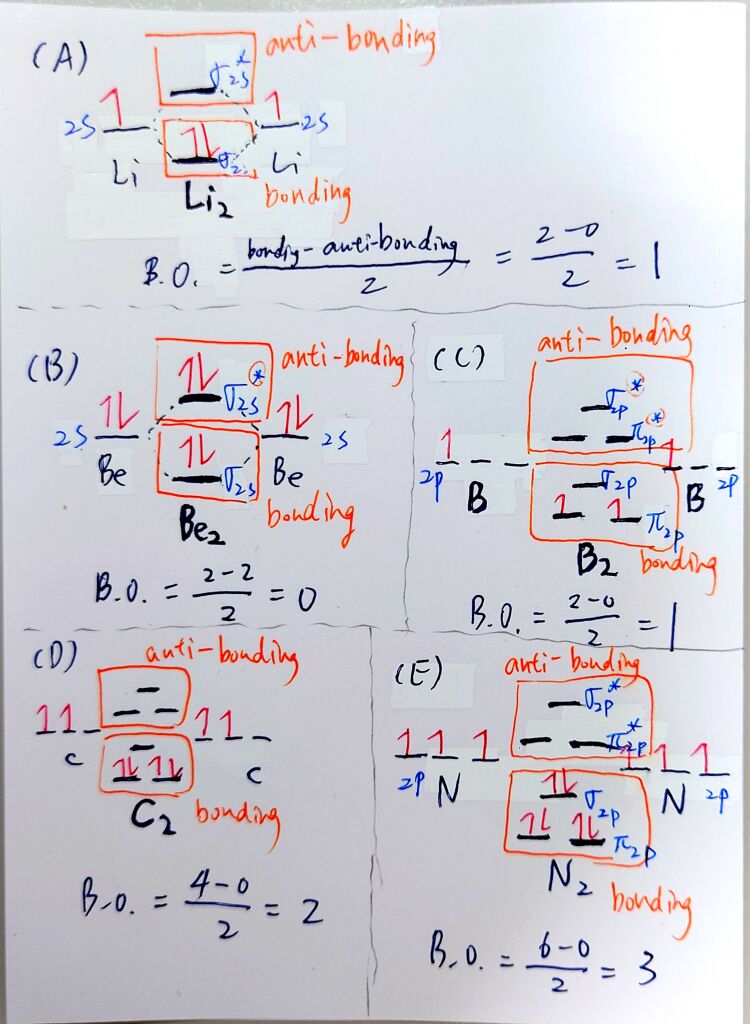 (A)
anti-bonding
σ2s*
2s 1 1 2s
1L
σ2s
Li Li
Li2
bonding
B.O. = bondig - anti-bonding / 2 = 2-0 / 2 = 1
(B)
anti-bonding
1L σ2s*
2s 1L 1L 2s
1L σ2s
Be Be
Be2
bonding
B.O. = 2-2 / 2 = 0
(C)
anti-bonding
σ2p*
π2p*
1 1
2p B B 2p
σ2p
1 1 π2p
B2
bonding
B.O. = 2-0 / 2 = 1
(D)
anti-bonding
1 1 1 1
C C
1L 1L
C2 bonding
B.O. = 4-0 / 2 = 2
(E)
anti-bonding
σ2p*
π2p*
1 1 1 1 1 1
2p N N 2p
1L σ2p
1L 1L π2p
N2
bonding
B.O. = 6-0 / 2 = 3